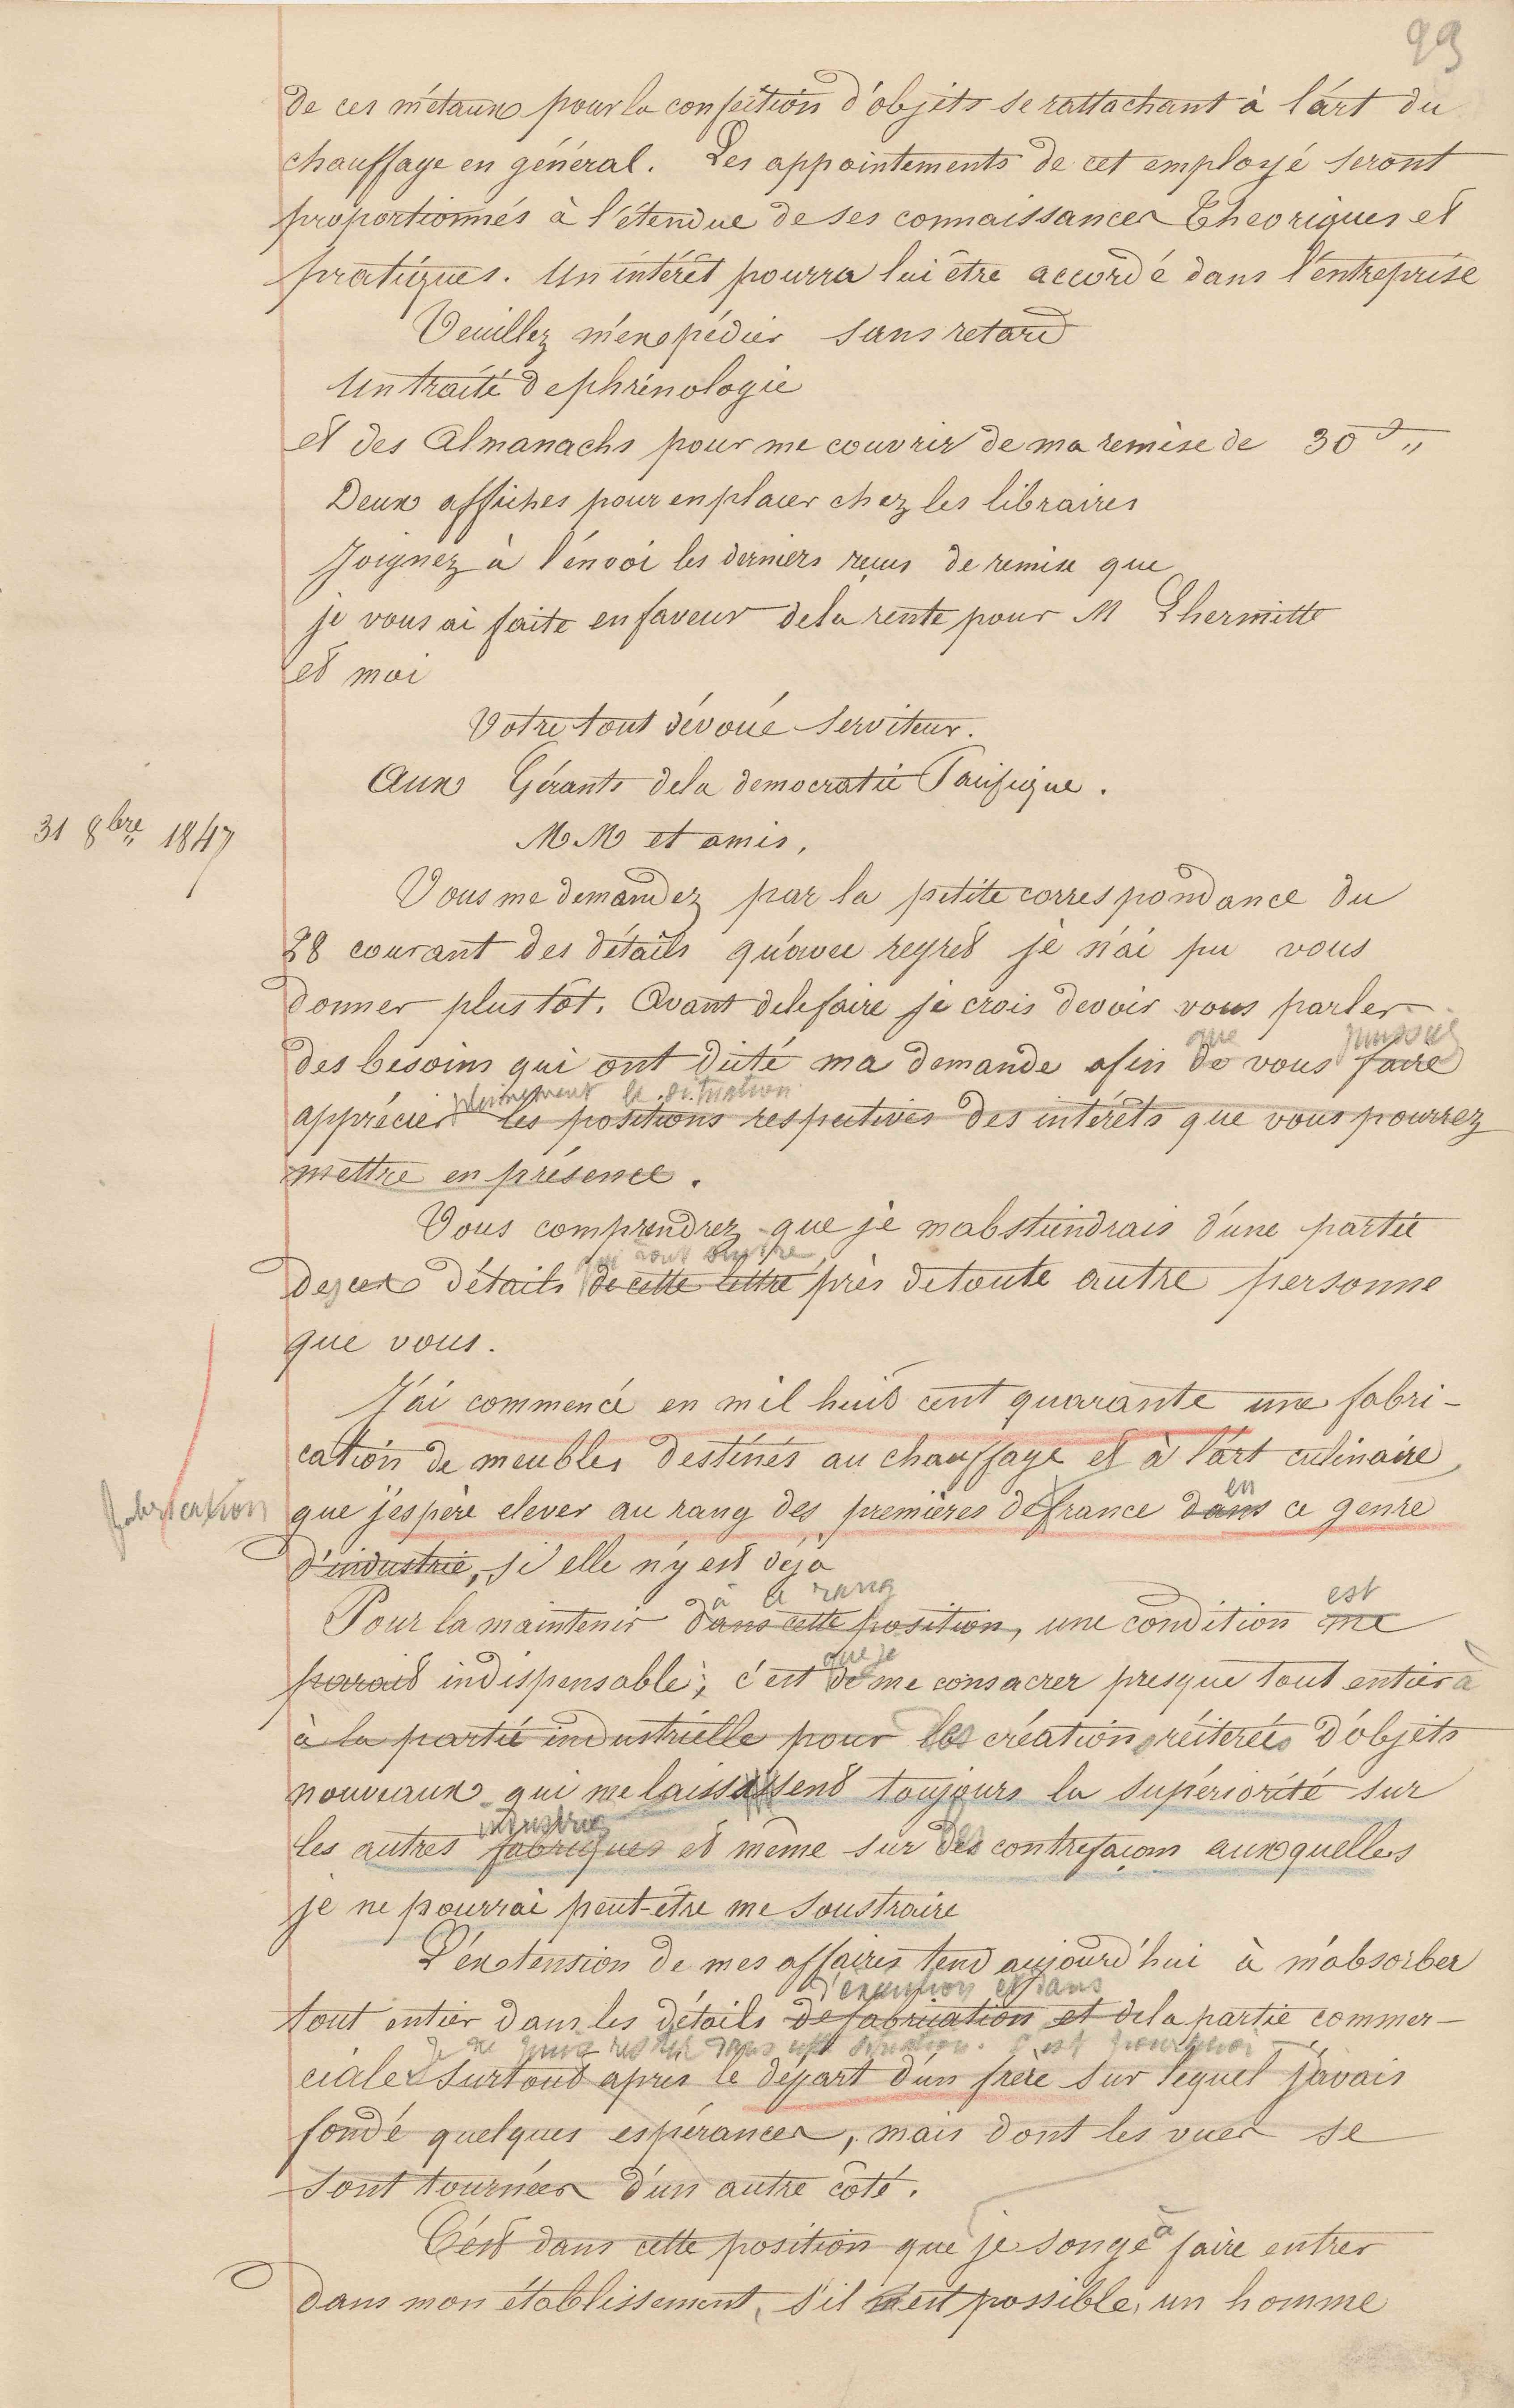 99
de ces métaux pour la confection d'objets se rattachant à l'art du
chauffage en général. Les appointements de cet employé seront
proportionnés à l'étendue de ses connaissances théoriques et
pratiques. Un intérêt pourra lui être accordé dans l'entreprise
Veuillez m'expédier sans retard
Un traité de phrénologie
et des Almanachs pour me couvrir de ma remise de 30 f "
Deux affiches pour en placer chez les libraires
Joignez à l'envoi les derniers reçus de remise que
je vous ai faite en faveur de la rente pour M Lhermitte
et moi
Votre tout dévoué serviteur.
Aux Gérants de la democratie Pacifique.
31 8bre 1847
MM et amis,
Vous me demandez par la petite correspondance du
28 courant des détails qu'avec regret je n'ai pu vous
donner plus tôt. Avant de le faire je crois devoir vous parler
que puissiez
des besoins qui ont dicté ma demande afin de vous faire
pleinement la situation
apprécier les positions respectives des intérêts que vous pourrez
mettre en présence.
Vous comprendrez que je m'abstiendrais d'une partie
qui vont suivre
de ces détails de cette lettre près de toute autre personne
que vous.
J'ai commencé en mil huit cent quarante une fabri-
cation de meubles destinés au chauffage et à l'art culinaire
en
fabrication
que j'espère elever au rang des premières de france dans ce genre
d'industrie, si elle n'y est déjà
à ce rang est
Pour la maintenir dans cette position, une condition me
que je
parait indispensable; c'est de me consacrer presque tout entier à
à la partie industrielle pour les créations réiterées d'objets
nouveaux qui me laissent toujours la supériorité sur
industries
les autres fabriques et même sur des contrefaçons auxquelles
je ne pourrai peut-être me soustraire
L'extension de mes affaires tend aujourd'hui à m'absorber
d'exécution et dans
tout entier dans les détails de fabrication et de la partie commer-
Je ne puis rester dans cette situation. C'est pourquoi
ciale surtout après le départ d'un frère sur lequel j'avais
fondé quelques espérances, mais dont les vues se
sont tournées d'un autre côté.
à
C'est dans cette position que je songe faire entrer
dans mon établissement, s'il est possible, un homme